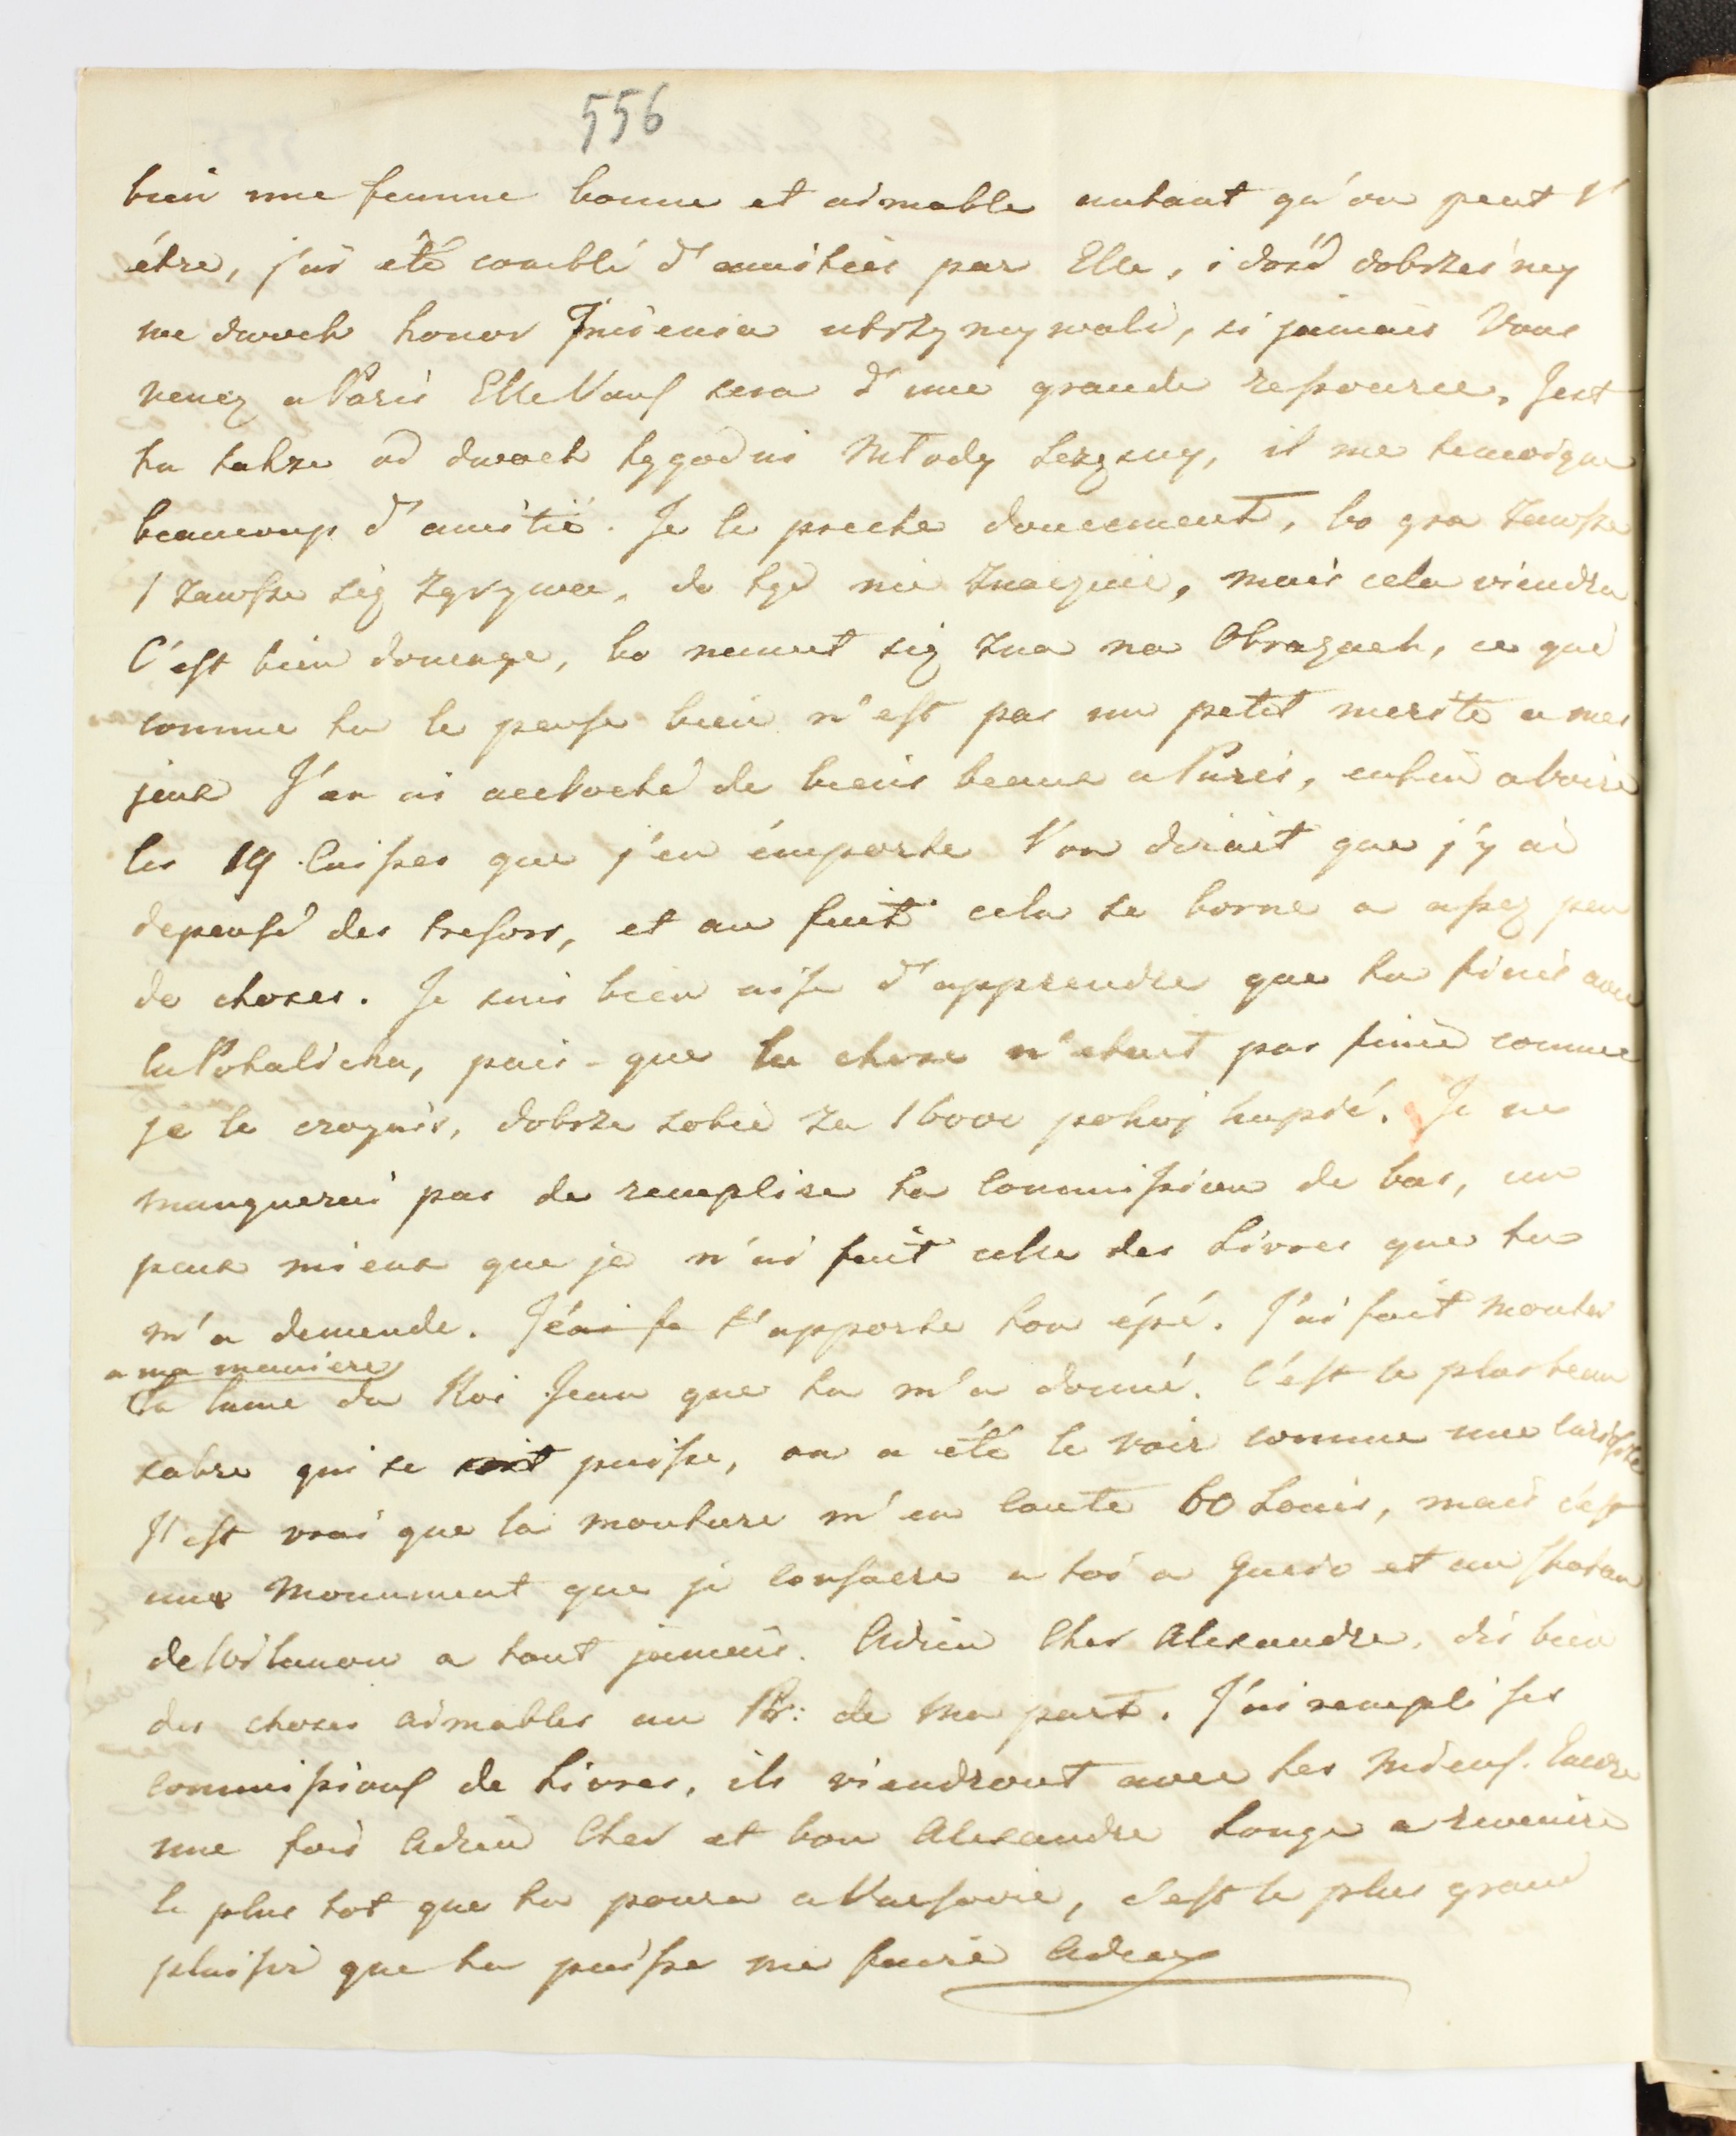 556
bien une femme bonne et aimable autant qu'on peut l'
étre, j'ai été comblé d'amitiés par Elle, i dosd dobrze my
we dwoch honor Imienia utrzymywali, si jamais Vous
venez a Paris Elle Vous sera d'une grande ressource. Jest
tu takze od dwoch tygodni Młody Seweryn, il me temoigne
beaucoup d'amitié. Je le preche doucement, bo gra zawsze
i zawsze się zgrywa, do tyd nie znacznie, mais cela viendra
C'est bien domage, bo nawet się zna na Obrazach, ce qui
comme tu le pense bien n'est pas un petit merite a mes
jeux J'en ai accroché de biens beaux a Paris, enfin a voire
les 19 Caisses que j'en émporte l'on dirait que j'y ai
depensé des tresors, et au fait cela se borne a assez peu
de choses. Je suis bien aise d'apprendre que tu finis avec
la Potalicka, puis-que la chose n'etait pas finie comme
je le croyais, dobrze sobie za 16000 pokoj kupić. Je ne
manquerai pas de remplire ta Commission de bas, un
peux mieux que je n'ai fait celle des Livres que tu
m'a demende. J'éai fa t'apporte ton épé. J'ai fait monter
a ma maniere
la lame du Roi Jean que tu m'a donné. C'est le plus beau
sabre qui se soit puisse, on a été le voir comme une
Il est vrai que la monture m'en Coute 60 Louis, mais c'est
une Monument que je Consacre a toi a Guido et au
de Wilanow a tout jamais. Adieu Cher Alexandre, dis bien
des choses aimables au Pr: de Ma part. J'ai rempli ses
Commissions de Livres, ils viendront avec les Miens. Encore
une fois Adieu Cher et bon Alexandre Songe a revenire
le plus tot que tu poura a Varsovie, c'est le plus grand
plaisir que tu puisse me faire Adieu